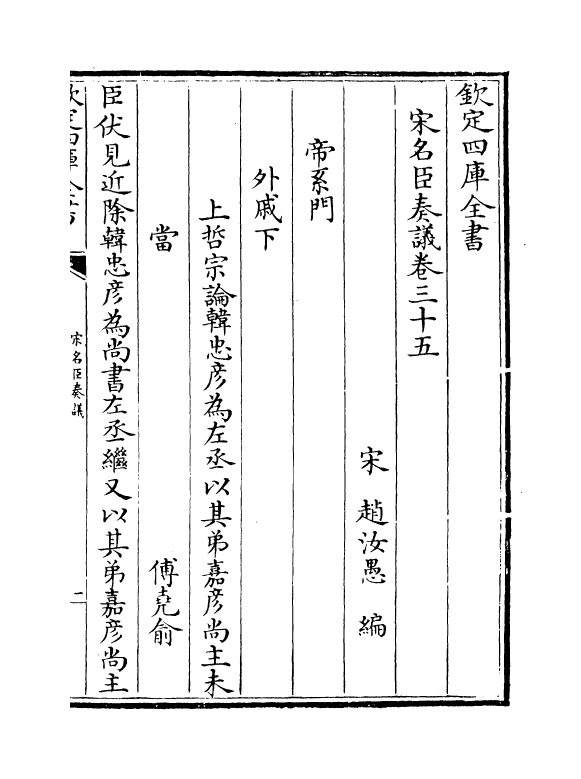 欽定四庫全書
宋名臣奏議卷三十五
宋 趙汝愚 編
帝系門
外戚下
上哲宗論韓忠彦為左丞以其弟嘉彦尚主未
當 傅堯俞
臣伏見近除韓忠彦為尚書左丞繼又以其弟嘉彦尚主
欽定四庫全書
宋名臣奏議
二